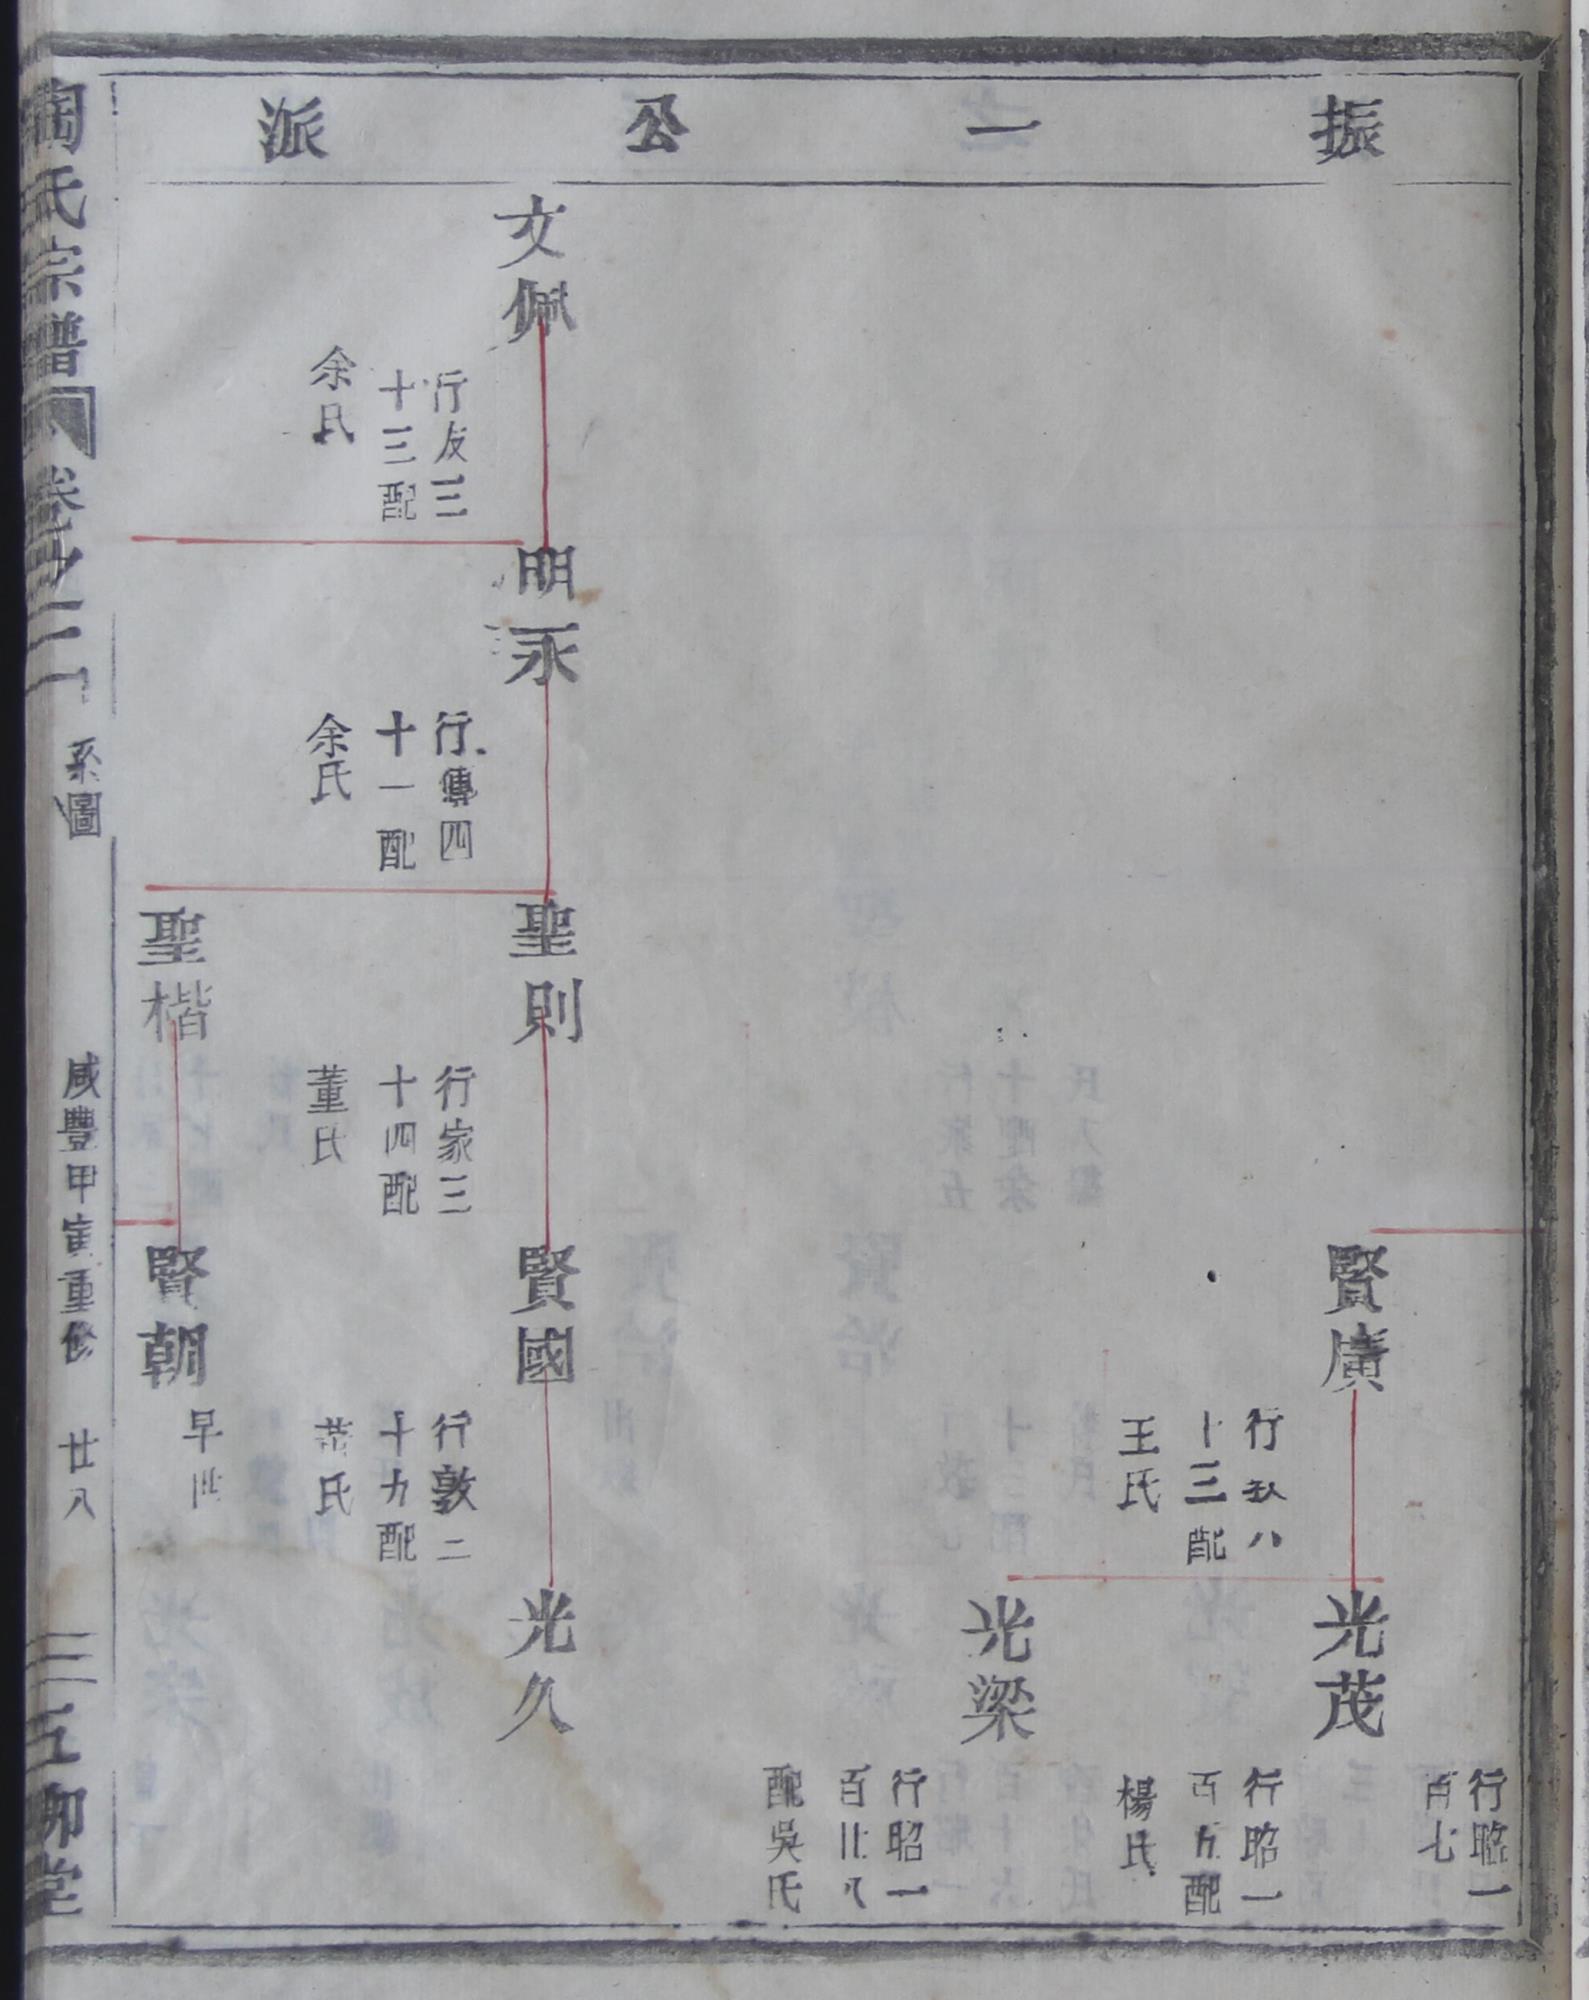 振一公派
賢廣
光茂
行昭一
百七
行
十三配
王氏
光梁
行昭一
百九配
楊氏
行昭一
百廿八
配吳氏
文佩
明永
聖則
賢國
光久
行友三
十三配
余氏
行傳四
十一配
余氏
行家三
十四配
董氏
行敦二
十九配
氏
聖楷
賢朝
早世
陶氏宗譜
卷之二
系圖
咸豐甲寅重修
廿八
五柳堂